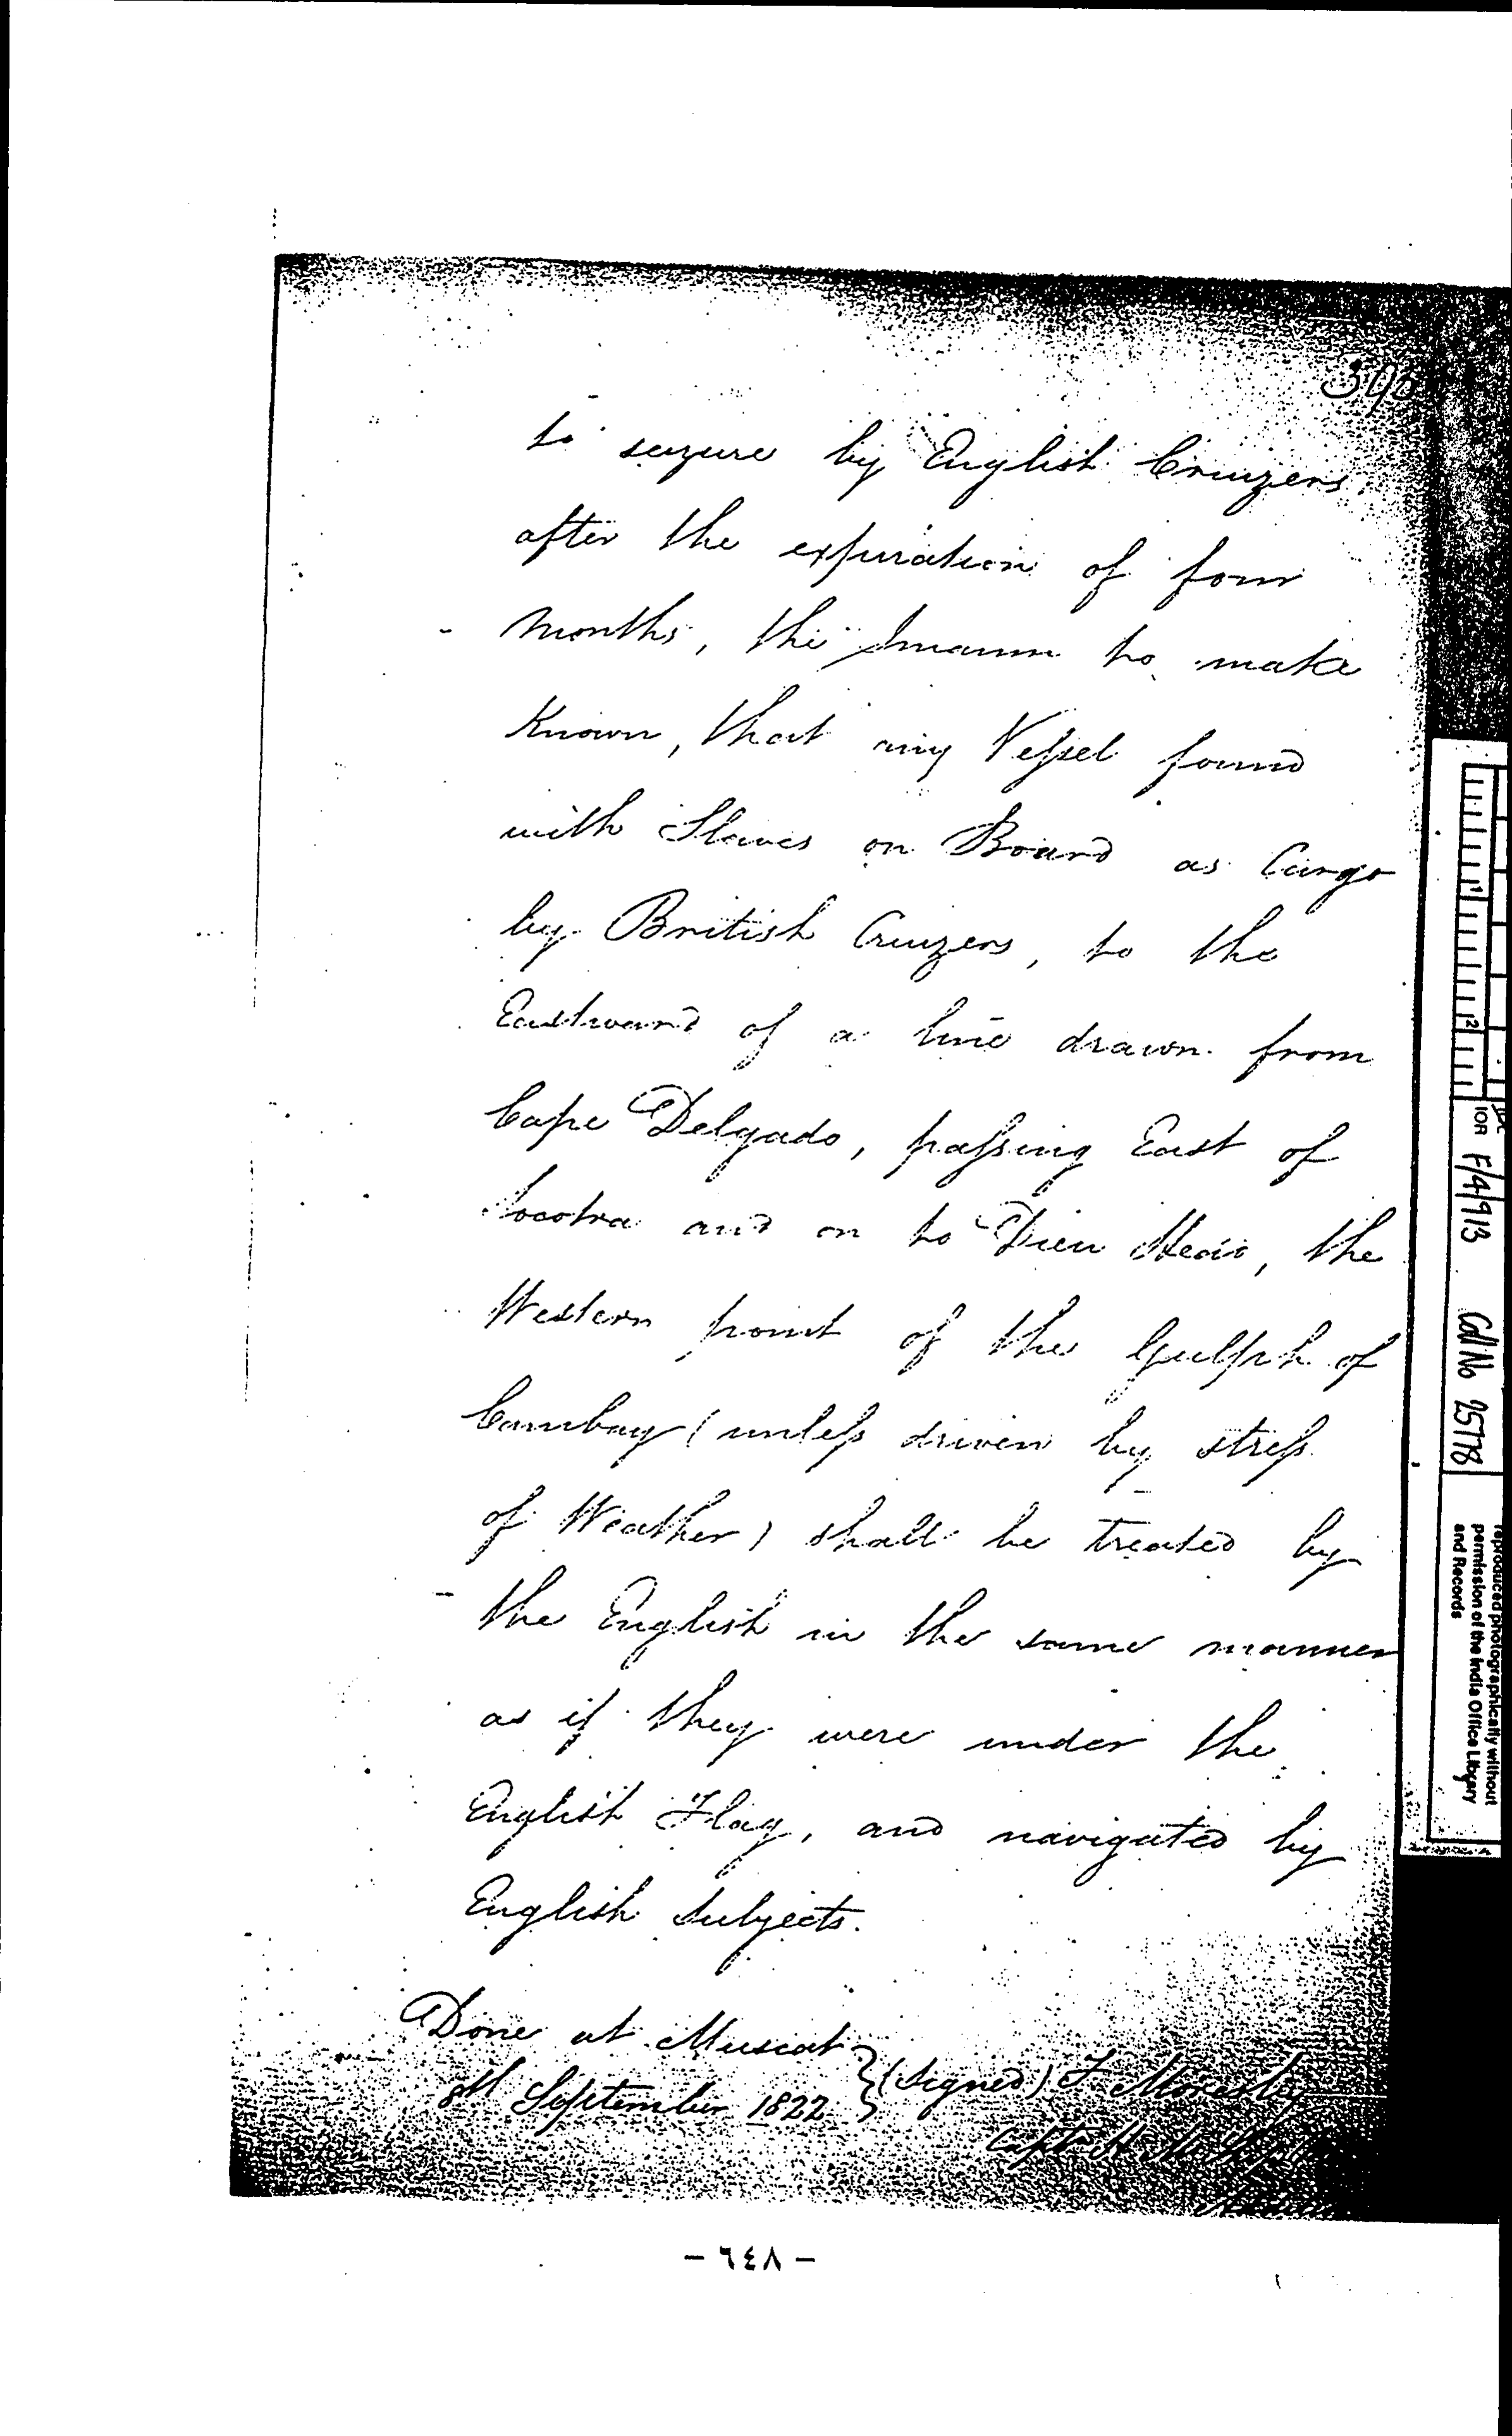 to seizure by English Cruizers
after the expiration of four
Months, the Imaum to make
Known, that any Vessel found
with Slaves on Board as Cargo
by British Cruizers, to the
Eastward of a line drawn from
Cape Delgado, passing East of
Socotra and on to Dieu Head, the
Western point of the Gulph of
Cambay (unless driven by stress
of Weather) shall be treated by
the English in the same manner
as if they were under the
English Flag, and navigated by
English Subjects.
Done at Muscat
8th September 1822 } (Signed) F Moresby
Captn H. M. Ship
- ٦٤٨ -
IOR F/4/913 Coll No 25778
reproduced photographically without
permission of the India Office Library
and Records